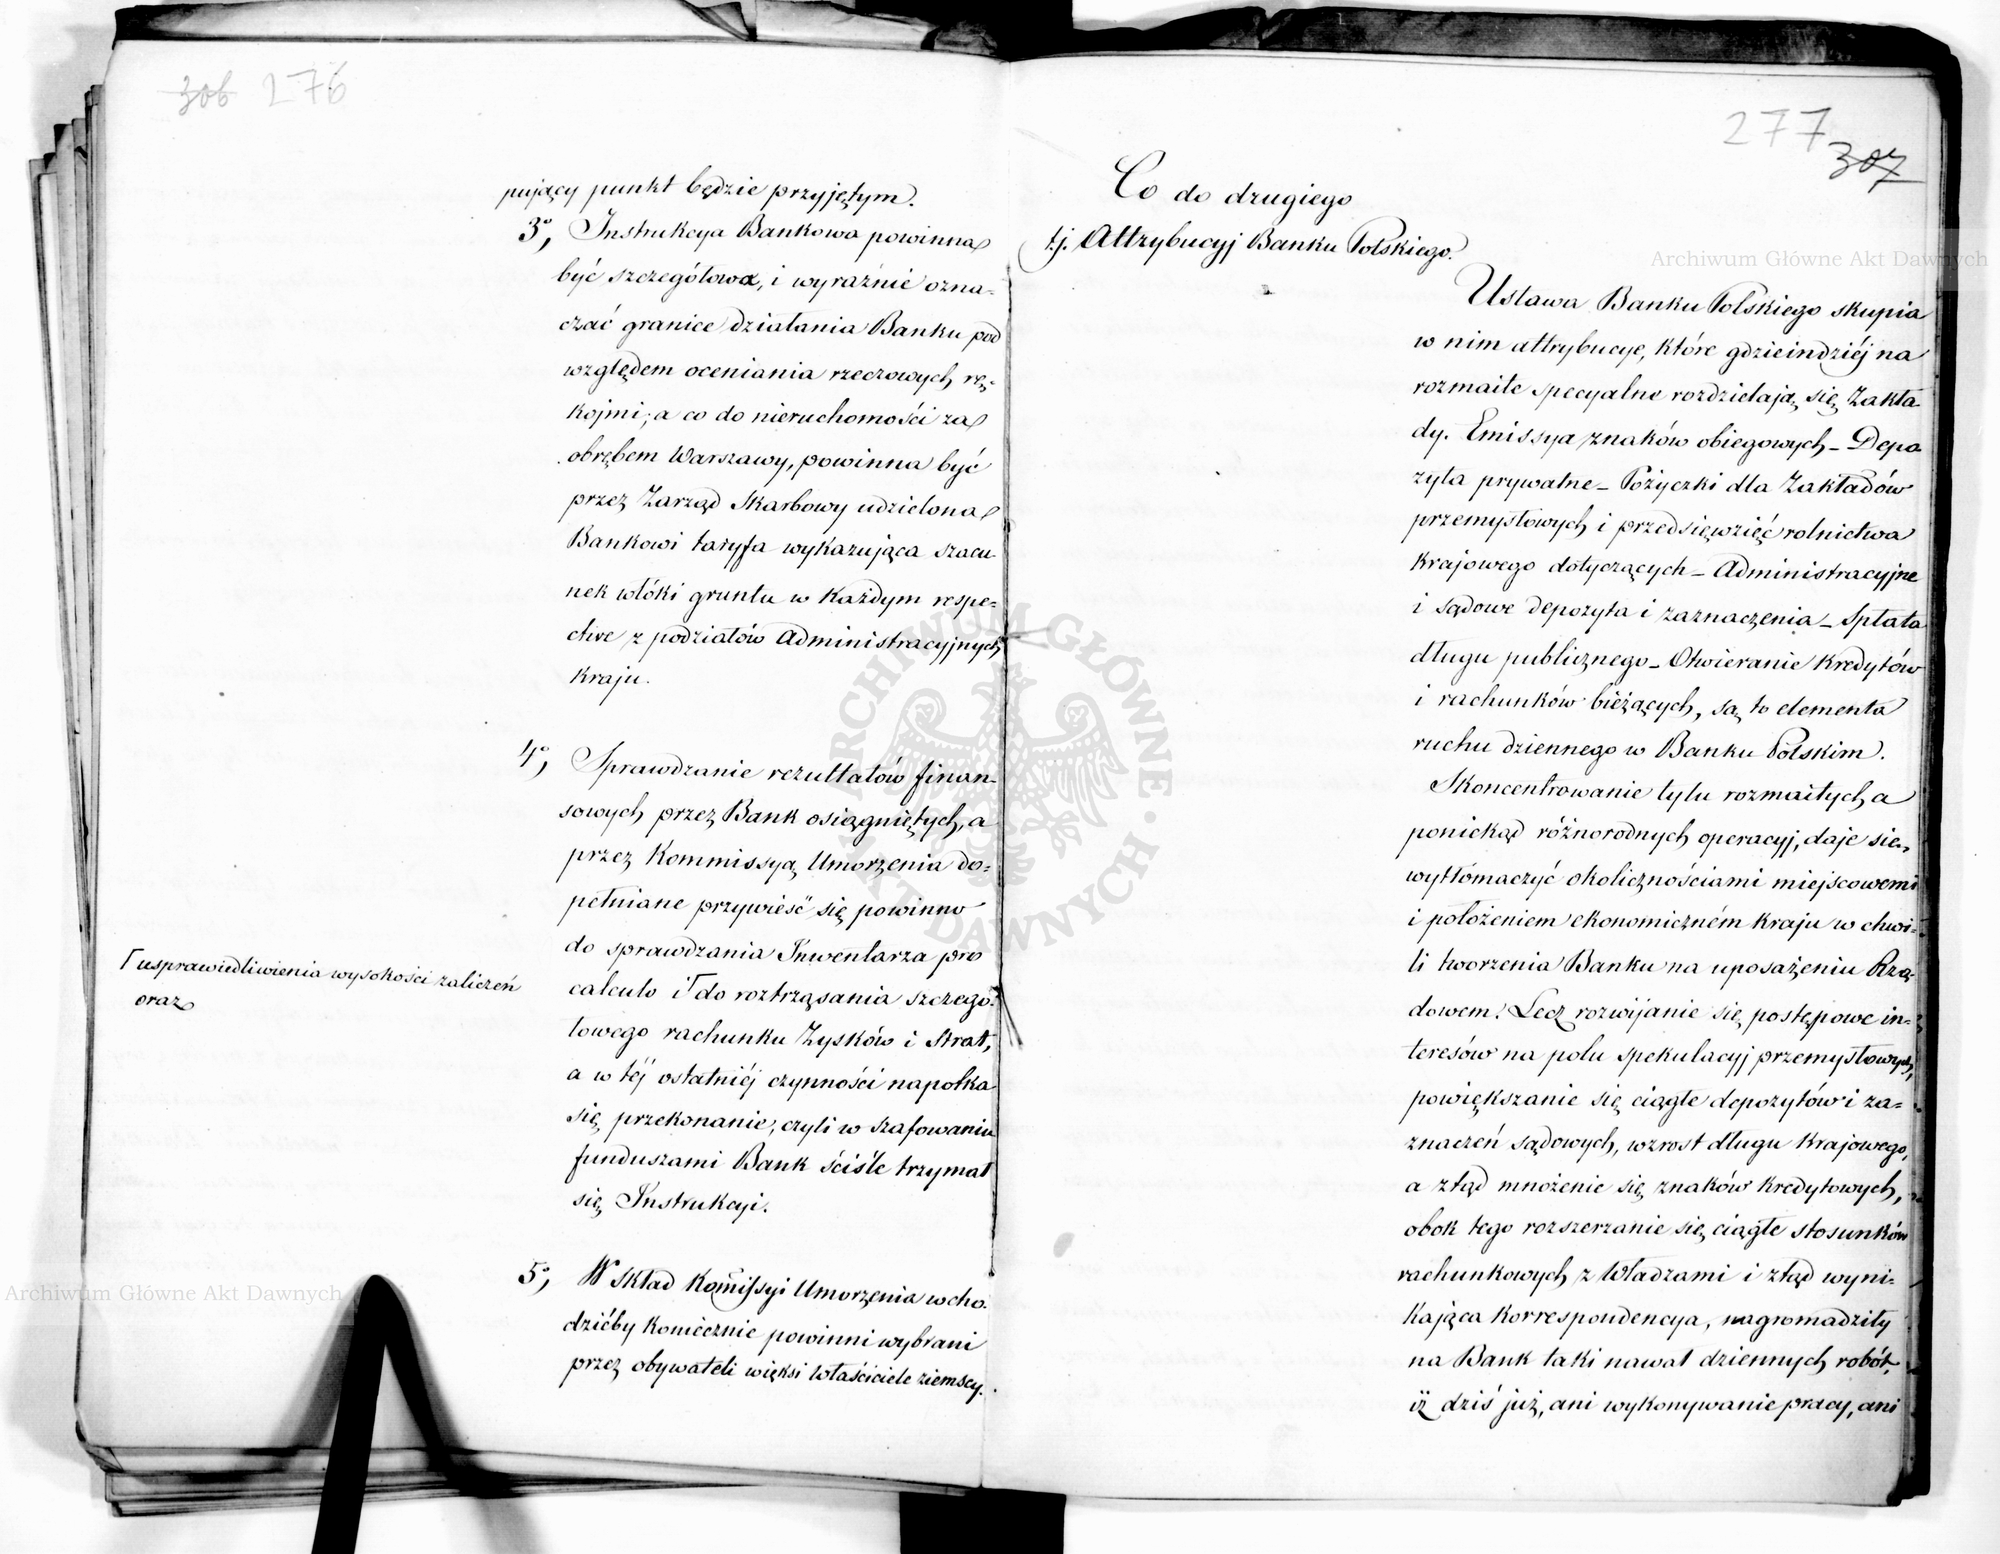 306 276
pujący punkt będzie przyjętym.
3°, Instrukcya Bankowa powinna
być szczegółowa, i wyraźnie ozna-
czać granice działania Banku pod
względem oceniania rzeczowych rę-
kojmi; a co do nieruchomości za
obrębem Warszawy, powinna być
przez Zarząd Skarbowy udzielona
Bankowi taryfa wykazująca szacu
nek włóki gruntu w każdym respe-
ctive z podziałów Administracyjnych
kraju.
4°, Sprawdzanie rezultatów finan-
sowych przez Bank osiągniętych, a
przez Kommissyą Umorzenia do-
pełniane przywieść się powinno
do sprawdzania Inwentarza pro
calculo i Γ do roztrząsania szczegó-
łowego rachunku Zysków i Strat,
a w téj ostatniéj czynności napotka
się przekonanie, czyli w szafowaniu
funduszami Bank ściśle trzymał
się Instrukcyi.
Γ usprawiedliwienia wysokości zaliczeń
oraz
5°, W skład Komissyi Umorzenia wcho-
dzićby koniecznie powinni wybrani
przez obywateli więksi właściciele ziemscy.
277
307
Co do drugiego
tj. Attrybucyj Banku Polskiego.
Ustawa Banku Polskiego skupia
w nim attrybucye, które gdzieindziéj na
rozmaite specyalne rozdzielają się Zakła
dy. Emissya znaków obiegowych – Depo
zyta prywatne – Pożyczki dla Zakładów
przemysłowych i przedsięwzięć rolnictwa
krajowego dotyczących – Administracyjne
i sądowe depozyta i zaznaczenia – Spłata
długu publicznego – Otwieranie kredytów
i rachunków bieżących, są to elementa
ruchu dziennego w Banku Polskim.
Skoncentrowanie tylu rozmaitych a
poniekąd różnorodnych operacyj, daje się
wytłómaczyć okolicznościami miejscowemi
i położeniem ekonomiczném kraju w chwi-
li tworzenia Banku na uposażeniu Rzą-
dowem. Lecz rozwijanie się postępowe in-
teresów na polu spekulacyj przemysłowych,
powiększanie się ciągłe depozytów i za-
znaczeń sądowych, wzrost długu krajowego,
a ztąd mnożenie się znaków kredytowych,
obok tego rozszerzanie się ciągłe stosunków
rachunkowych z Władzami i ztąd wyni-
kająca korrespondencya, nagromadziły
na Bank taki nawał dziennych robót,
iż dziś już, ani wykonywanie pracy, ani
Archiwum Główne Akt Dawnych
Archiwum Główne Akt Dawnych
ARCHIWUM GŁÓWNE · AKT DAWNYCH ·